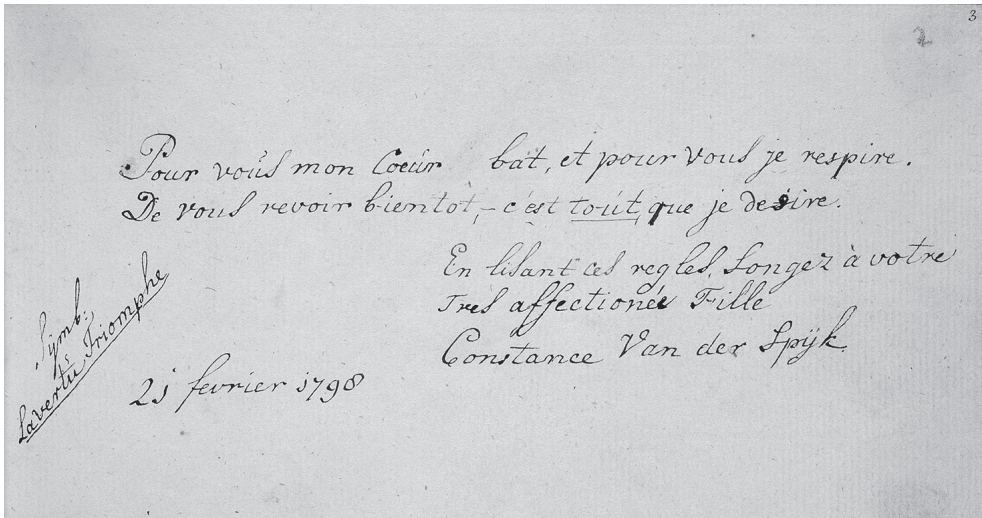 3
2
Pour vous mon Coeur bat, et pour vous je respire.
De vous revoir bientot, – c'est tout, que je desire.
En lisant ces regles, Songez à votre
Tres affectionée Fille
Constance Van der Spÿk
Sÿmb:
La vertu Triomphe
21 fevrier 1798